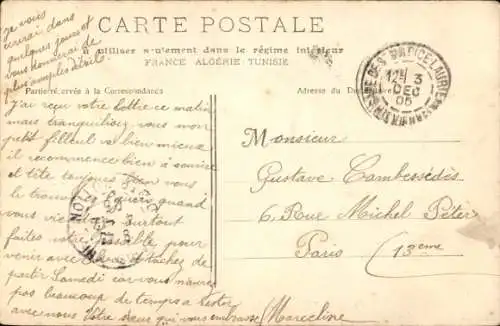 je vous
écrirai dans
quelques jours et
vous donnerai de
plus amples détails.
CARTE POSTALE
à utiliser seulement dans le régime intérieur
FRANCE ALGÉRIE TUNISIE
Partie réservée à la Correspondance
Adresse du Destinataire
12 3
DEC
05
J'ai reçu votre lettre ce matin
mais tranquilisez vous mon
petit filleul va bien mieux
il recommence bien à sourire
et tête toujours bien vous
le trouverez guéri quand
vous viendrez surtout
faites votre possible pour
venir avec et tachez de
partir Samedi car vous n'aurez
pas beaucoup de temps à rester
avec nous Votre sœur qui vous embrasse Marceline
Monsieur
Gustave Combessédès
6 Rue Michel Peter
Paris 13ème